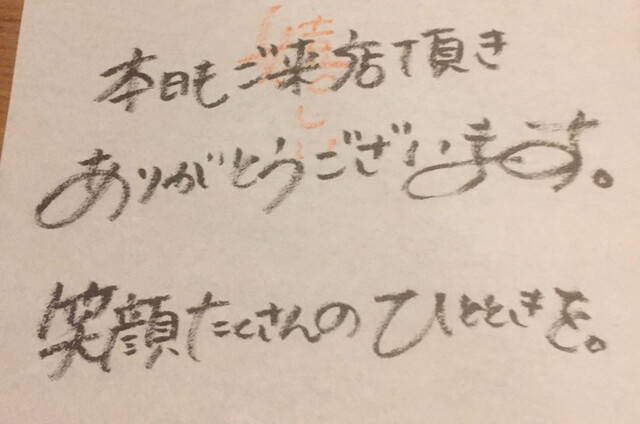 本日もご来店頂き
ありがとうございます。
笑顔たくさんのひとときを。